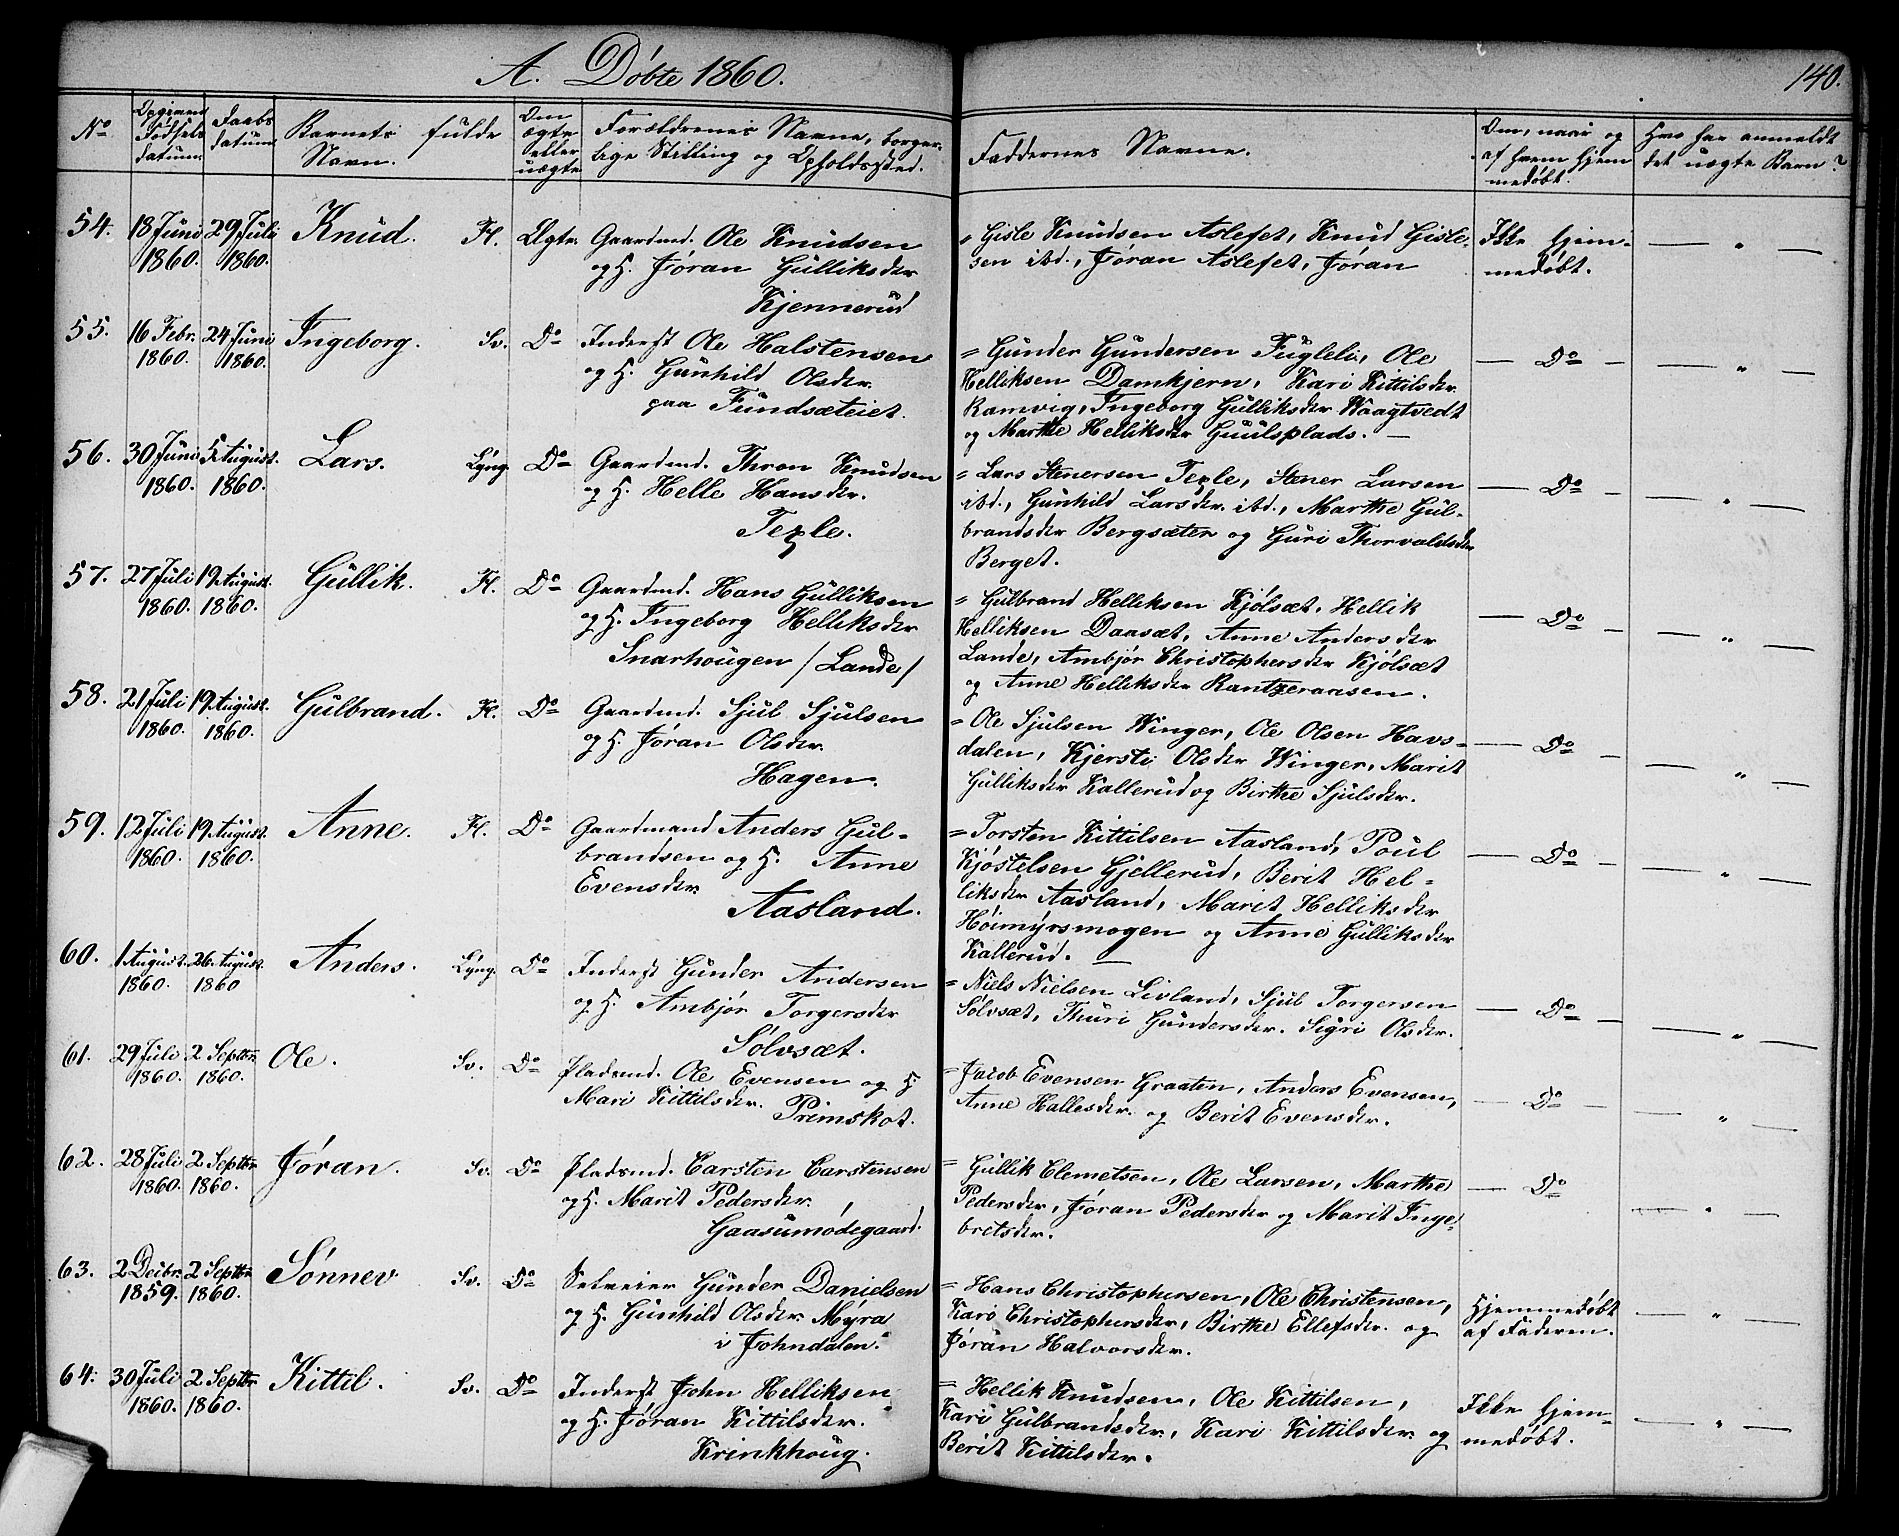 A. Döbte 1860.
140.
No
Opgivne Fødsels datum.
Daabs datum.
Barnets fulde Navn.
Om ægte eller uægte
Forældrenes Navne, borgerlige Stilling og Opholdssted.
Faddernes Navne.
Om, naar og af hvem hjemmedøbt.
Hvo har anmeldt det uægte Barn?
54. 18 Juni 1860. 29 Juli 1860. Knud. Fl. Ægte.
Gaardmd. Ole Knudsen
og H. Jøran Gulliksdr
Kjennerud
= Gisle Knudsen Aslefet, Knud Gisle-
sen ibd., Jøran Aslefet, Jøran
Ikke hjem-
medøbt.
— " —
55. 16 Febr. 1860. 24 Juni 1860. Ingeborg. Sv. Do
Inderst Ole Halstensen
og H. Gunhild Olsdr.
paa Fundsæteiet.
= Gunder Gundersen Fuglelie, Ole
Helliksen Damkjern, Kari Kittilsdr.
Ramvig, Ingeborg Gulliksdr Waagtvedt
og Marthe Helliksdr Guulsplads. —
— Do —
— " —
56. 30 Juni 1860. 5 August. 1860. Lars. Lyng. Do
Gaardmd. Thron Knudsen
og H. Helle Hansdr.
Texle.
= Lars Stenersen Texle, Stener Larsen
ibd., Gunhild Larsdr. ibd., Marthe Gul-
brandsdr Bergsæter og Guri Thorvaldsdr
Berget.
— Do —
— " —
57. 27 Juli 1860. 19 August. 1860. Gullik. Fl. Do
Gaardmd. Hans Gulliksen
og H. Ingeborg Helliksdr
Snarhougen /Lande/
= Gulbrand Helliksen Kjölsæt, Hellik
Helliksen Daasæt, Anne Andersdr
Lande, Ambjør Christophersdr Kjölsæt
og Anne Helliksdr Rantzeraasen.
— Do —
— " —
58. 21 Juli 1860. 19 August. 1860. Gulbrand. Fl. Do
Gaardmd. Sjul Sjulsen
og H. Jøran Olsdr.
Hagen.
= Ole Sjulsen Winger, Ole Olsen Havs-
dalen, Kjersti Olsdr Winger, Marit
Gulliksdr Kallerud og Birthe Sjulsdr.
— Do —
— " —
59. 12 Juli 1860. 19 August. 1860. Anne. Fl. Do
Gaardmand Anders Gul-
brandsen og H. Anne
Evensdr
Aasland.
= Torsten Kittilsen Aasland, Poul
Kjöstelsen Gjellerud, Berit Hel-
liksdr Aasland, Marit Helliksdr
Höimyrsmogen og Anne Gulliksdr
Kallerud. —
— Do —
— " —
60. 1 August. 1860. 26. August. 1860 Anders. Lyng. Do
Inderst Gunder Andersen
og H. Ambjör Torgersdr
Sölvsæt.
= Niels Nielsen Livland, Sjul Torgersen
Sölvsæt, Thuri Gundersdr. Sigri Olsdr.
— Do —
— " —
61. 29 Juli 1860. 2 Septbr. 1860. Ole. Sv. Do
Pladsmd. Ole Evensen og H.
Mari Kittilsdr.
Primskot.
= Jacob Evensen Graaten, Anders Evensen,
Anne Hallesdr. og Berit Evensdr.
— Do —
— " —
62. 28 Juli 1860. 2 Septbr 1860. Jøran. Sv. Do
Pladsmd. Carsten Carstensen
og H. Marit Pedersdr.
Gaasumødegaard.
= Gullik Clemetsen, Ole Larsen, Marthe
Pedersdr, Jøran Pedersdr og Marit Inge-
bretsdr.
— Do
— " —
63. 2 Decbr. 1859. 2 Septbr 1860. Sönnev Sv. Do
Selveier Gunder Danielsen
og H. Gunhild Olsdr. Myra
i Johndalen.
= Hans Christophersen, Ole Christensen,
Kari Christophersdr, Birthe Ellefsdr. og
Jøran Halvorsdr.
Hjemmedøbt
af Faderen.
— " —
64. 30 Juli 1860. 2 Septbr 1860. Kittil. Sv. Do
Inderst John Helliksen
og H. Jøran Kittilsdr.
Krinkhoug.
= Hellik Knudsen, Ole Kittilsen,
Kari Gulbrandsdr, Kari Kittilsdr og
Berit Kittilsdr.
Ikke hjem-
medøbt.
— " —